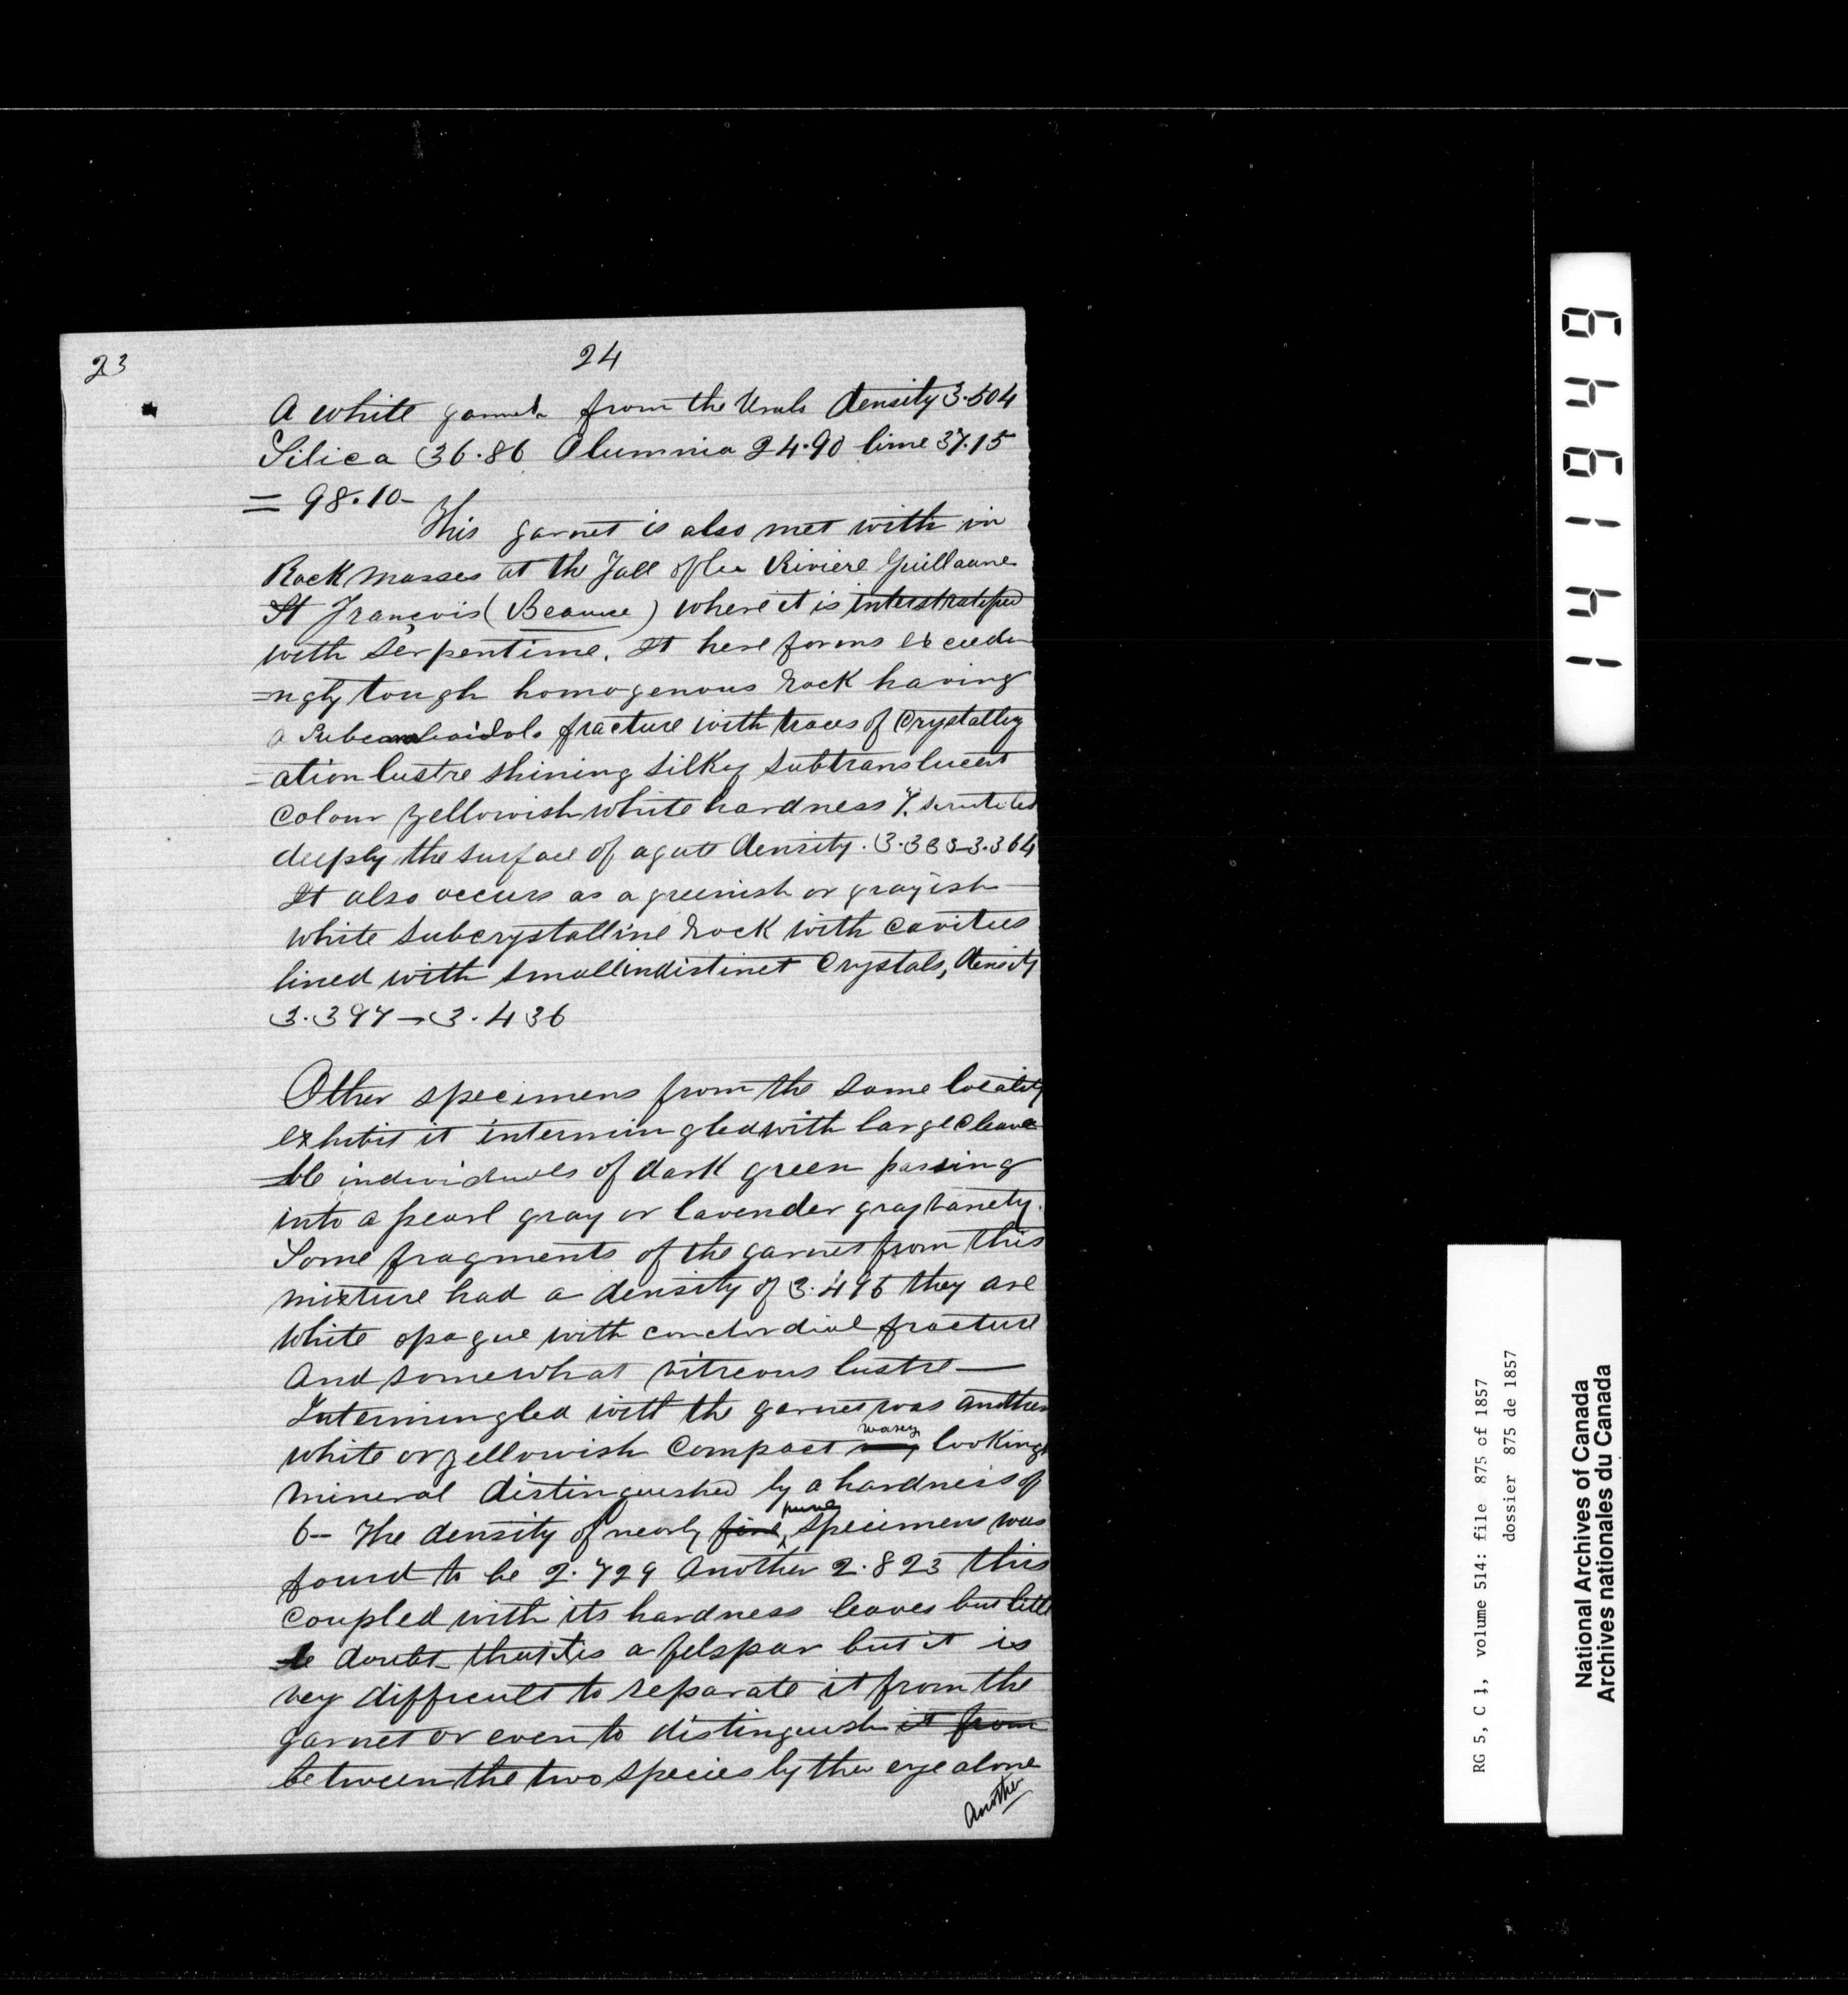 23
24
A white garnet from the Urals density 3.504
Silica 36.86 Alumnia 24.90 lime 37.15
= 98.10 -
This garnet is also met with in
Rock masses at the Fall of la Riviere Guillaume
St François (Beauce) where it is interstratified
with Serpentine. It here forms exceedi
=ngly tough homogenous rock having
a fracture with traces of Crystalliz
=ation lustre shining silky subtranslucent
Colour yellowish white hardness 7.
deeply the surface of agate density. 3.333-3.364
It also occurs as a greenish or grayish -
white subcrystalline rock with cavities
lined with small indistinct Crystals, density
3.397 - 3.436
Other specimens from the same locality
exhibit it intermingled with large Cleava
=ble individuals of dark green passing
into a pearl gray or lavender gray variety.
Some fragments of the garnet from this
mixture had a density of 3.496 they are
white opaque with conchordial fracture
And somewhat vitreous lustre -
Intermingled with the garnet was another
white or yellowish Compact waxy looking
mineral distinguished by a hardness of
6 - The density of nearly fine pure specimens was
found to be 2.729 Another 2.823 this
Coupled with its hardness leaves but litt
le doubt that it is a felspar but it is
very difficult to separate it from the
garnet or even to distinguish it from
between the two species by the eye alone
Another
141949
RG 5, C 1, volume 514: file 875 of 1857
dossier 875 de 1857
National Archives of Canada
Archives nationales du Canada